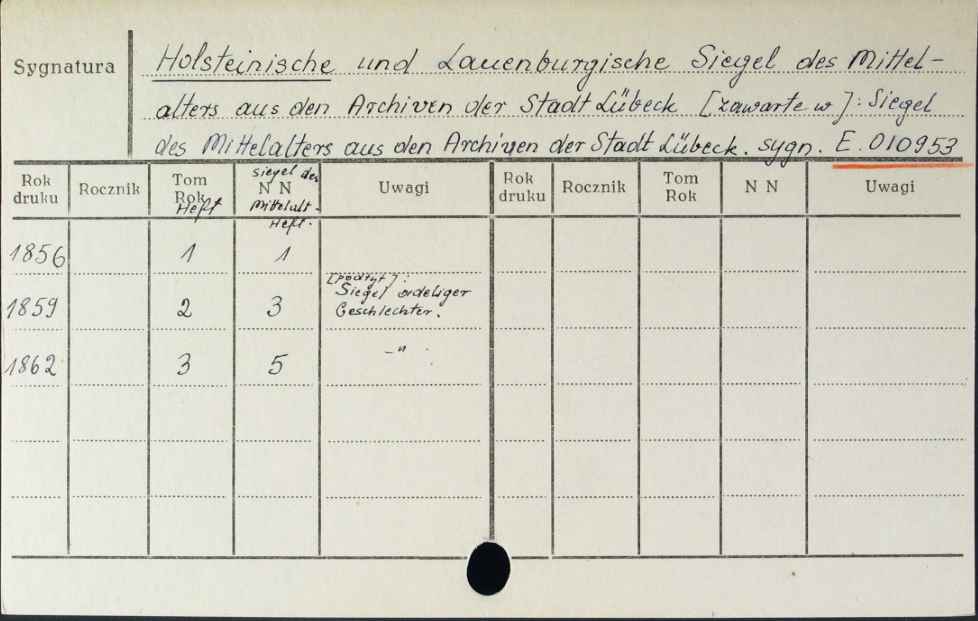 Sygnatura
Holsteinische und Lauenburgische Siegel des Mittel-
alters aus den Archiven der Stadt Lübeck [zawarte w]: Siegel
des Mittelalters aus den Archiven der Stadt Lübeck. sygn. E. 010953
Rok druku Rocznik Tom Rok Heft N N Siegel des Mittelalt. Heft. Uwagi Rok druku Rocznik Tom Rok N N Uwagi
1856 1 1
1859 2 3 [podtyt]: Siegel adeliger Geschlechter.
1862 3 5 -"-